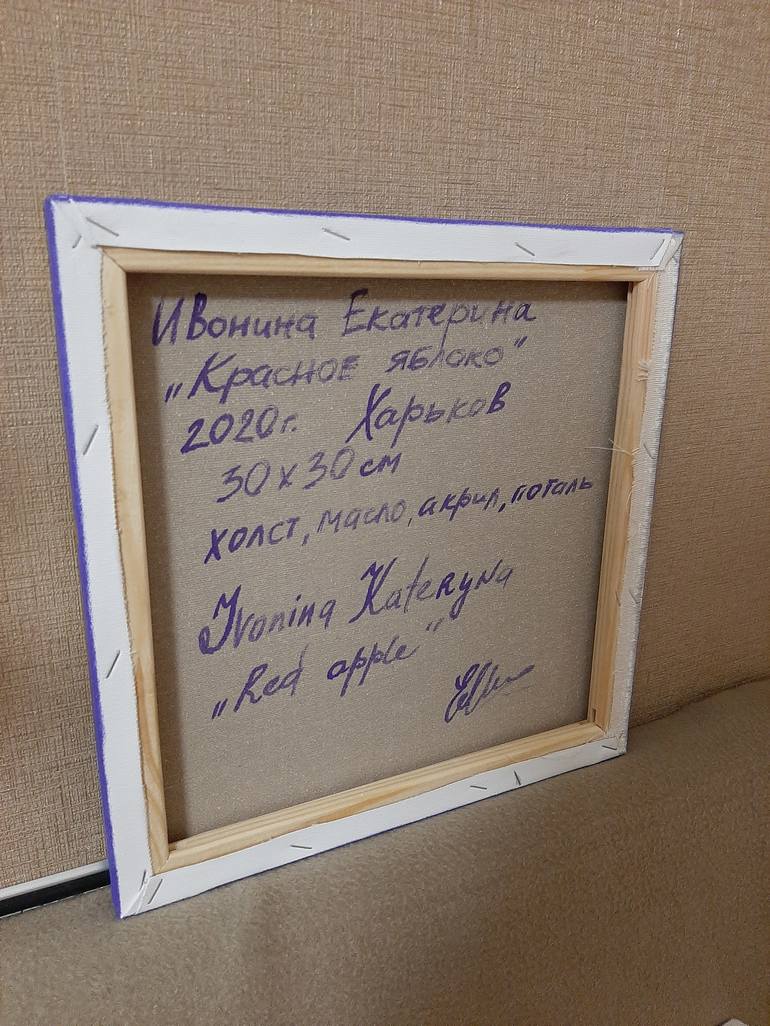 Ивонина Екатерина
„Красное яблоко"
2020г. Харьков
30х30см
холст, масло, акрил, поталь
Ivonina Kateryna
„Red apple"